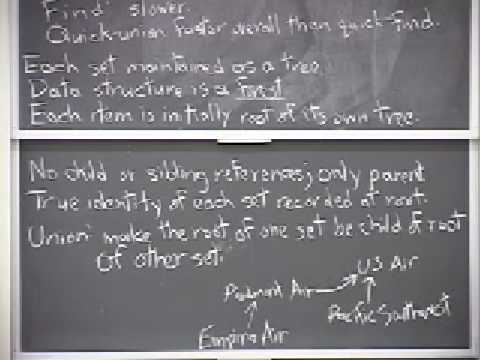 Find: slower.
Quick-union faster overall than quick-find.
Each set maintained as a tree.
Data structure is a forest
Each item is initially root of its own tree.
No child or sibling references; only parent
True identity of each set recorded at root.
Union: make the root of one set be child of root
of other set.
US Air
Piedmont Air
Pacific Southwest
Empire Air